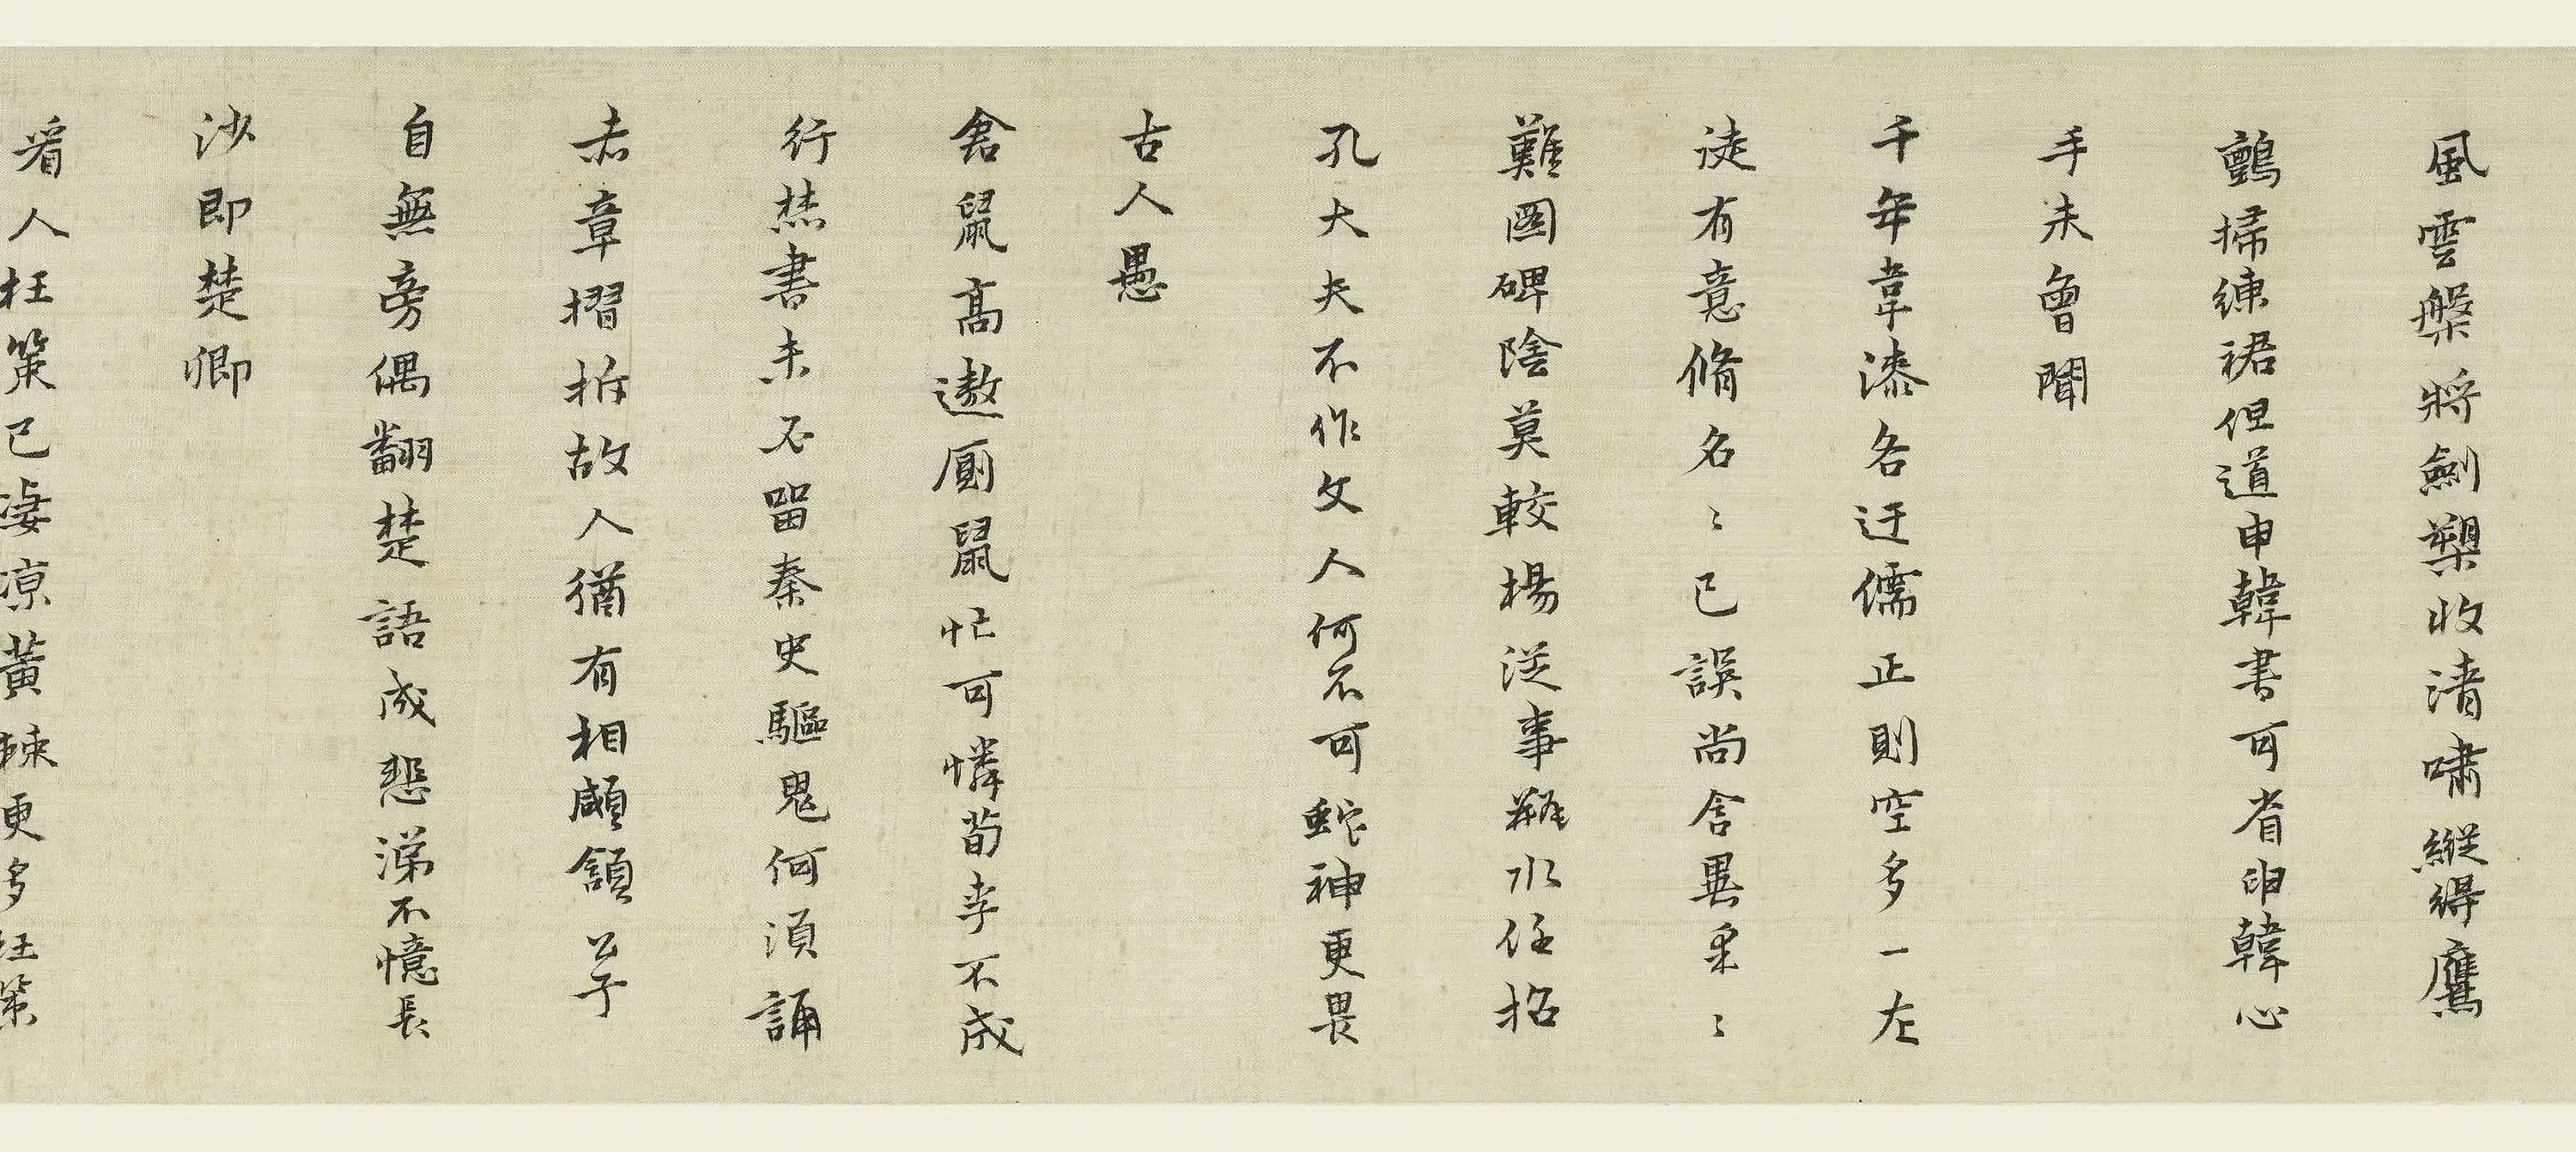 風雲槃將劍槊收清嘯縱得鷹
鸇掃練裙但道申韓書可省申韓心
手未曾聞
千年韋漆各迂儒正則空多一左
徒有意脩名〻已誤尚含異采〻
難圖碑陰莫較楊從事缾水任招
孔大夫不作文人何不可蛇神更畏
古人愚
倉鼠高遨廁鼠忙可憐荀李不成
行焚書未不留秦史驅鬼何須誦
赤章摺拆故人猶有相顑頷羋
自無旁偶翻楚語成悲涕不憶長
沙即楚卿
看人枉策已淒涼黃楝更多枉策